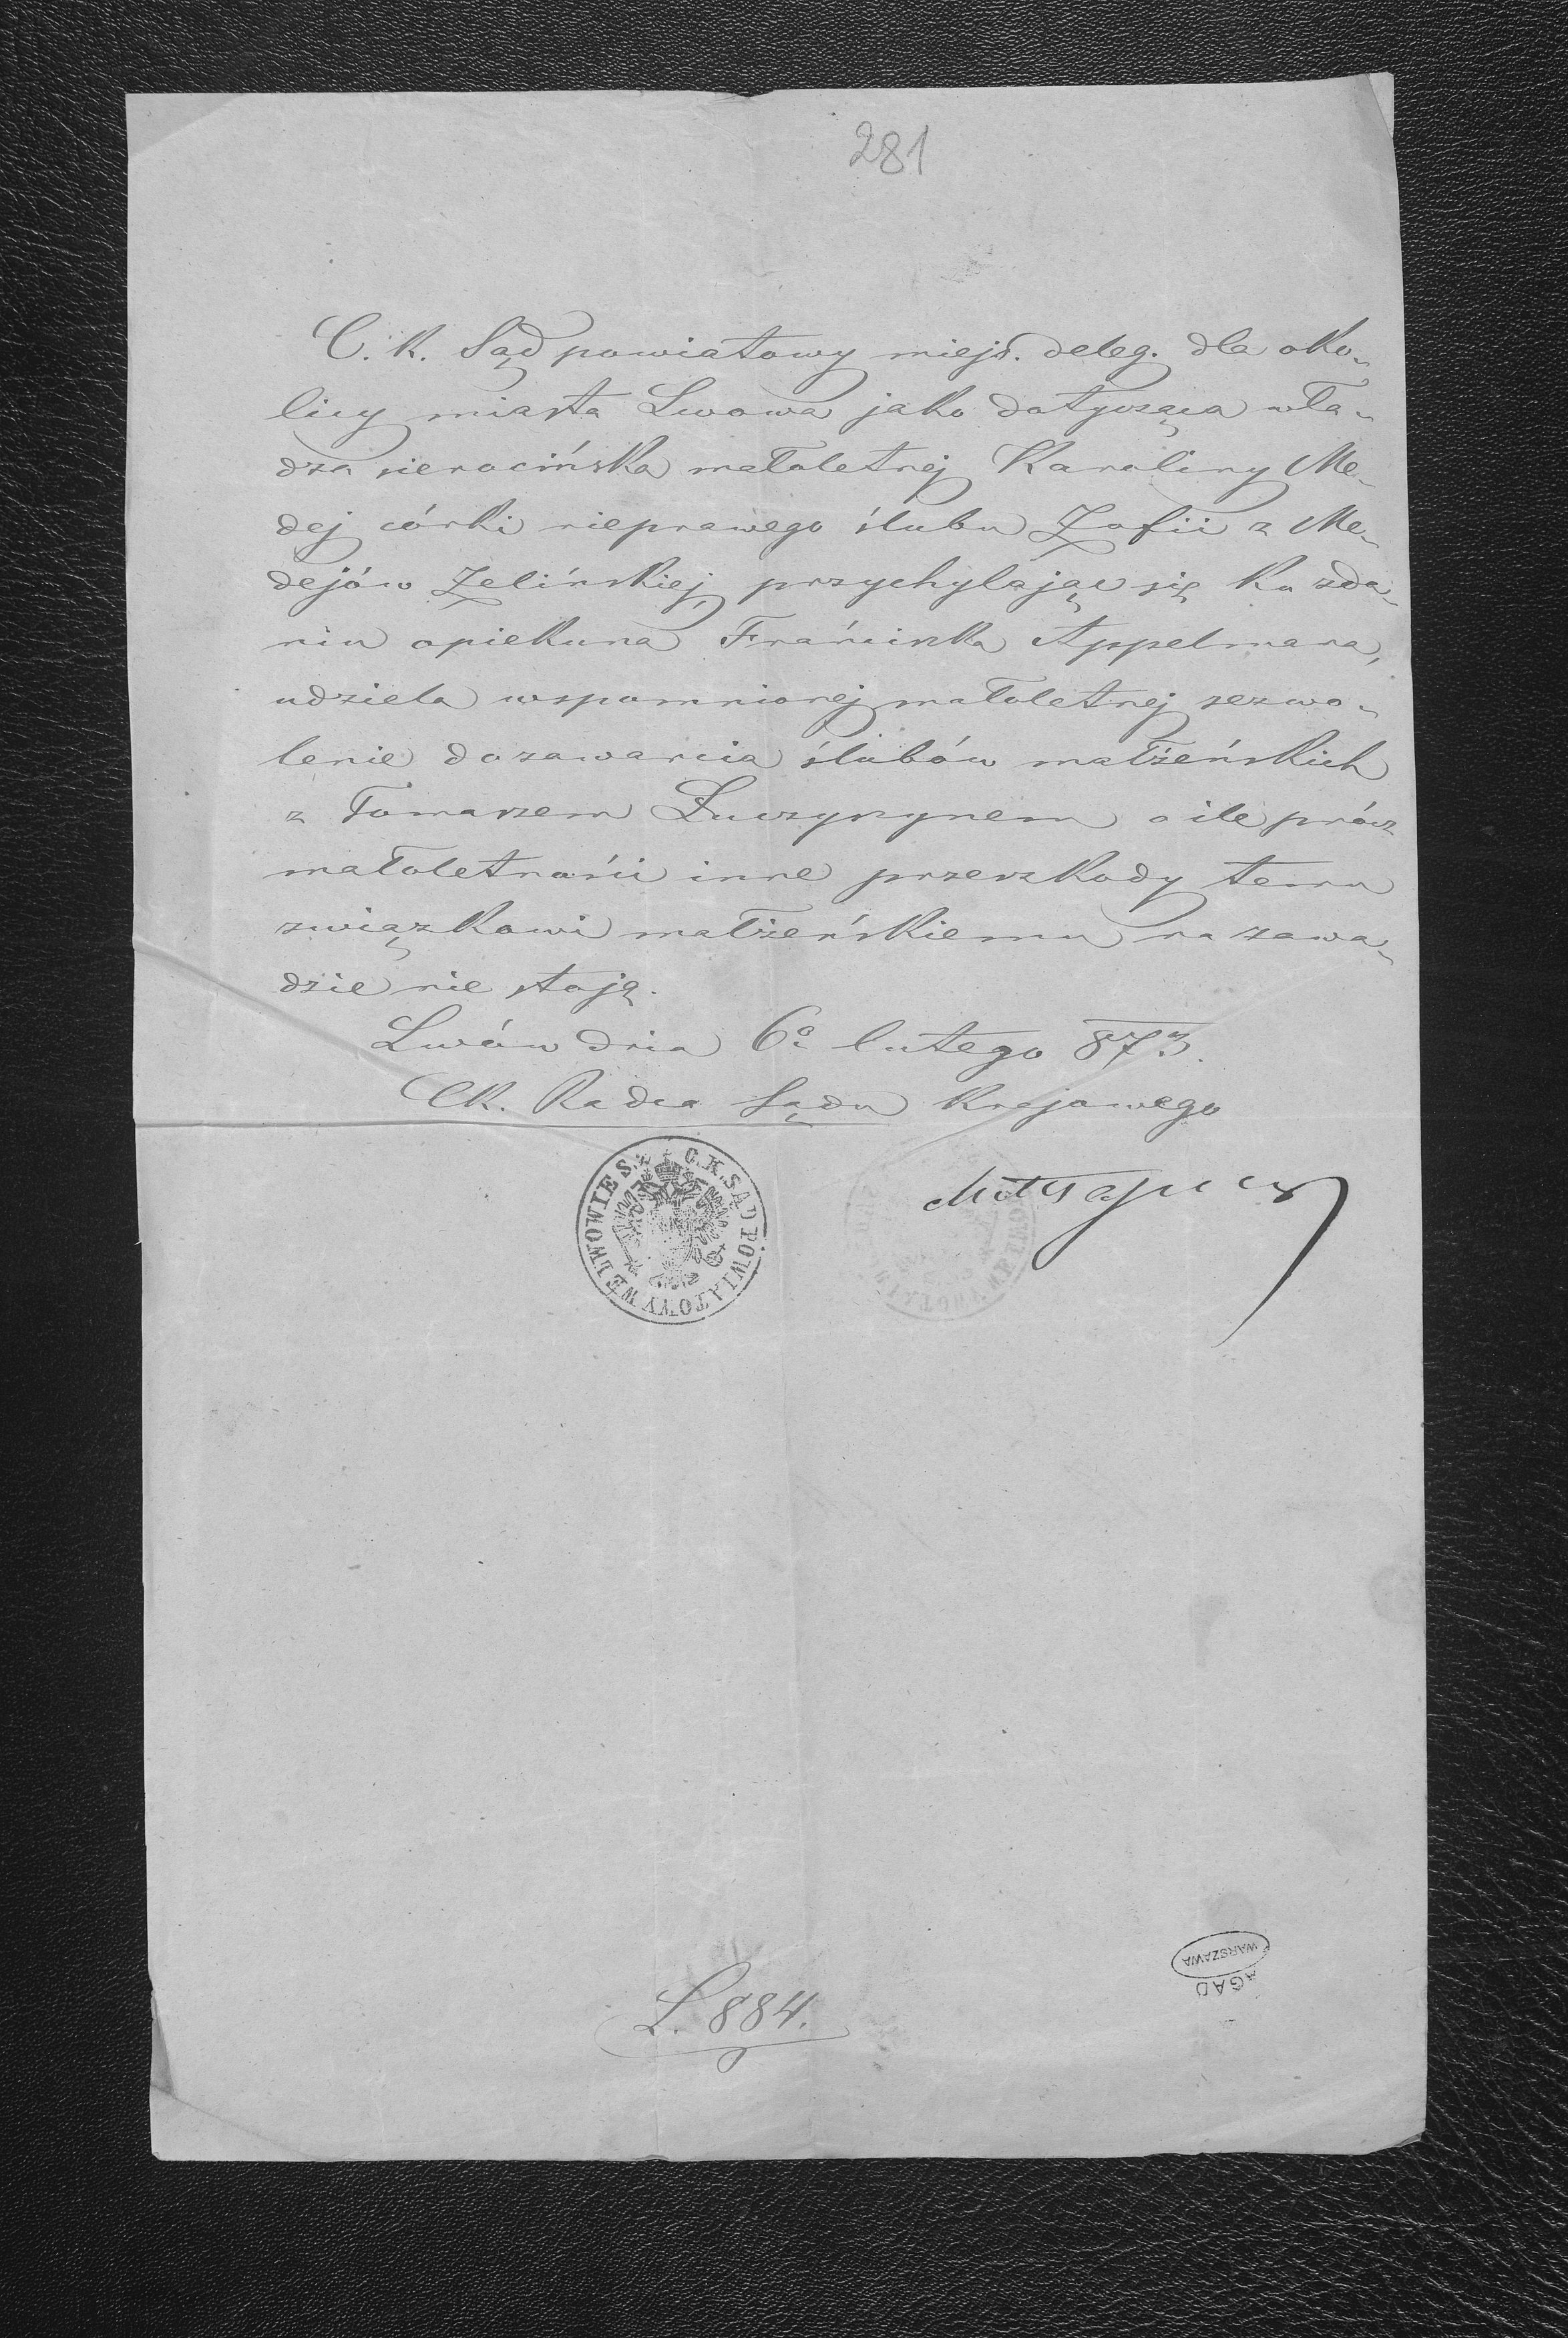 281
C. K. Sąd powiatowy miejs. deleg. dla oko-
licy miasta Lwowa jako dotycząca wła-
dza sierocińska małoletnej Karoliny Me-
dej córki nieprawego ślubu Zofii z Me-
dejów Zelińskiej, przychylając się ku zda-
niu opiekuna Frańciszka Appelmana,
udziela wspomnionej małoletnej zezwo-
lenie do zawarcia ślubów małżeńskich
z Tomaszem Łuczyszynem o ile prócz
małoletności inne przeszkody temu
związkowi małżeńskiemu na zawa-
dzie nie stoją.
Lwów dnia 6º lutego 873.
CK. Radca Sądu Krajowego
C.K.SĄD POWIATOWY WE LWOWIE S.
L. 884.
AGAD
WARSZAWA